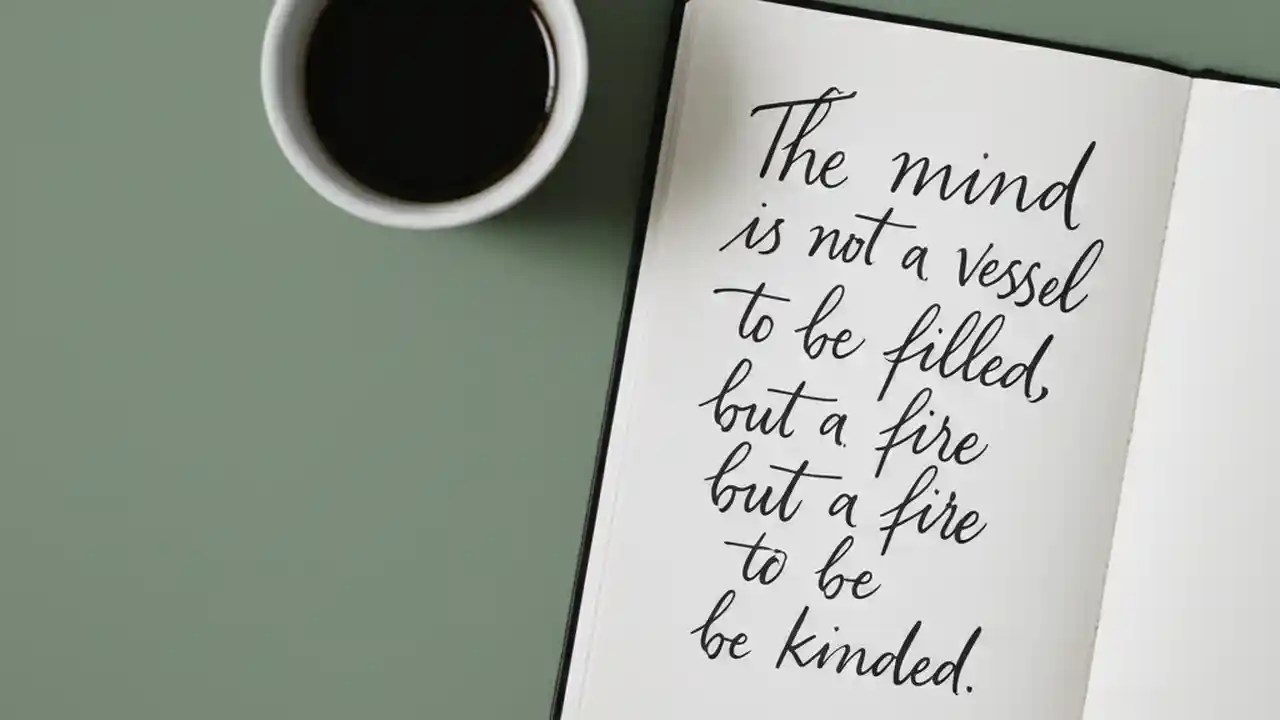 The mind
is not a vessel
to be filled,
but a fire
but a fire
to be
be kinded.